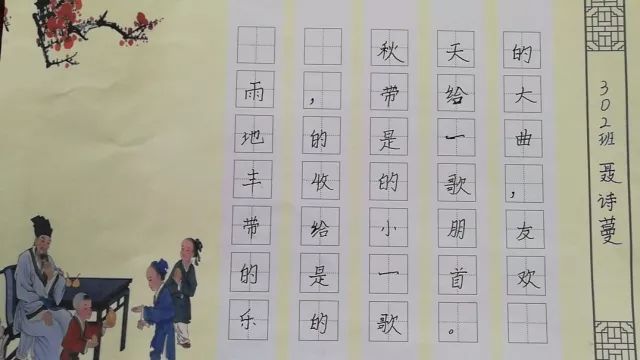 秋天的
雨，带给大
地的是一曲
丰收的歌，
带给小朋友
的是一首欢
乐的歌。
302班 聂诗蔓